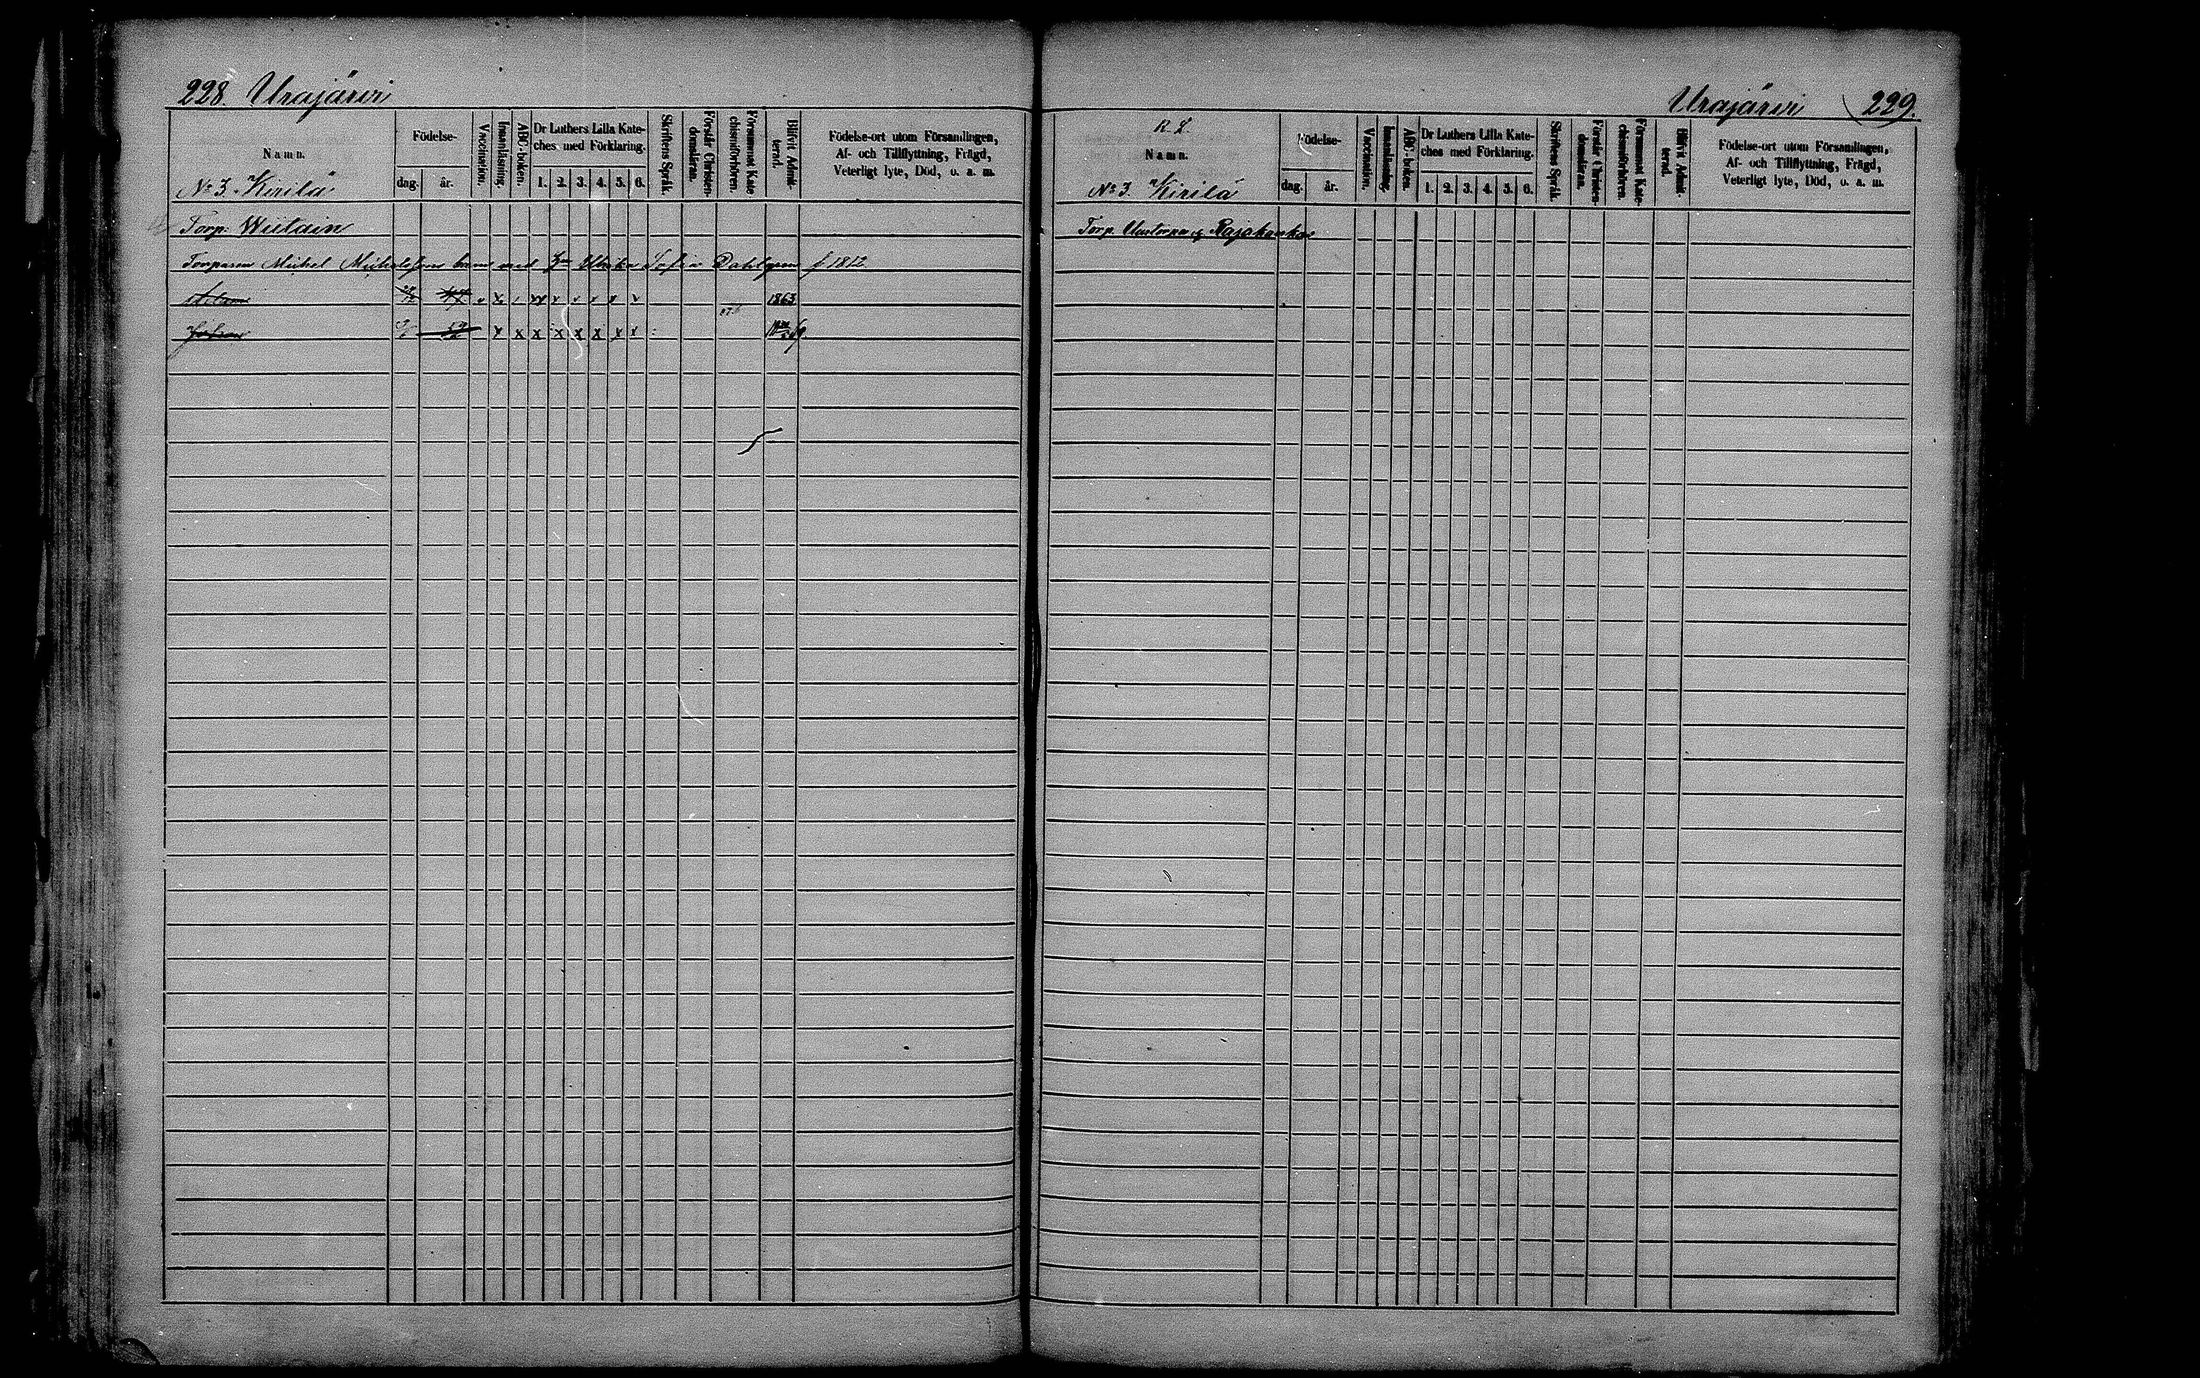 228. Urajärvi
Namn.
Födelse-
dag.
år.
Vaccination.
Innanläsning.
ABC-boken.
Dr Luthers Lilla Kate-
ches med Förklaring.
1. 2. 3. 4. 5. 6.
Skriftens Språk.
Förstår Christen-
domsläran.
Försummat Kate-
chismiförhören.
Blifvit Admit-
terad.
Födelse-ort utom Församlingen,
Af- och Tillflyttning, Frägd,
Veterligt lyte, Död, o. a. m.
No 3. Kirilä
Torp. Wiitain
Torparen Michel Michelssons barn med Ulrika Sofia Dahlgren f. 1812
x x x 1863
x x x x x x x x
Urajärvi 229.
R. L.
Namn.
Födelse-
dag.
år.
Vaccination.
Innanläsning.
ABC-boken.
Dr Luthers Lilla Kate-
ches med Förklaring.
1. 2. 3. 4. 5. 6.
Skriftens Språk.
Förstår Christen-
domsläran.
Försummat Kate-
chismiförhören.
Blifvit Admit-
terad.
Födelse-ort utom Församlingen,
Af- och Tillflyttning, Frägd,
Veterligt lyte, Död, o. a. m.
No 3. Kirilä
Torp. Rajakanka